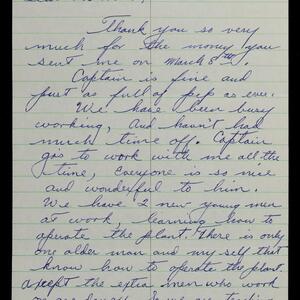 Thank you so very
much for the money you
sent me on March 8th.
Captain is fine and
just as full of pep as ever.
We have been busy
working, and havn't had
much time off. Captain
goes to work with me all the
time, Everyone is so nice
and wonderful to him.
We have 2 new young men
at work, learning how to
operate the plant. There is only
one older man and my self that
know how to operate the plant.
except the extra men who work